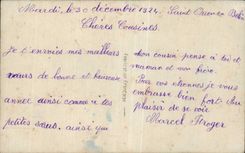 Mardi, le 30 décembre 1924.
Chères Cousines
Je t'envoies mes meilleurs
vœux de bonne et heureuse
année ainsi comme à tes
petites sœurs, ainsi que
mon cousin pense à toi et
maman et mon père.
Pour vos étrennes je vous
embrasse bien fort. Au
plaisir de se voir
Marcel